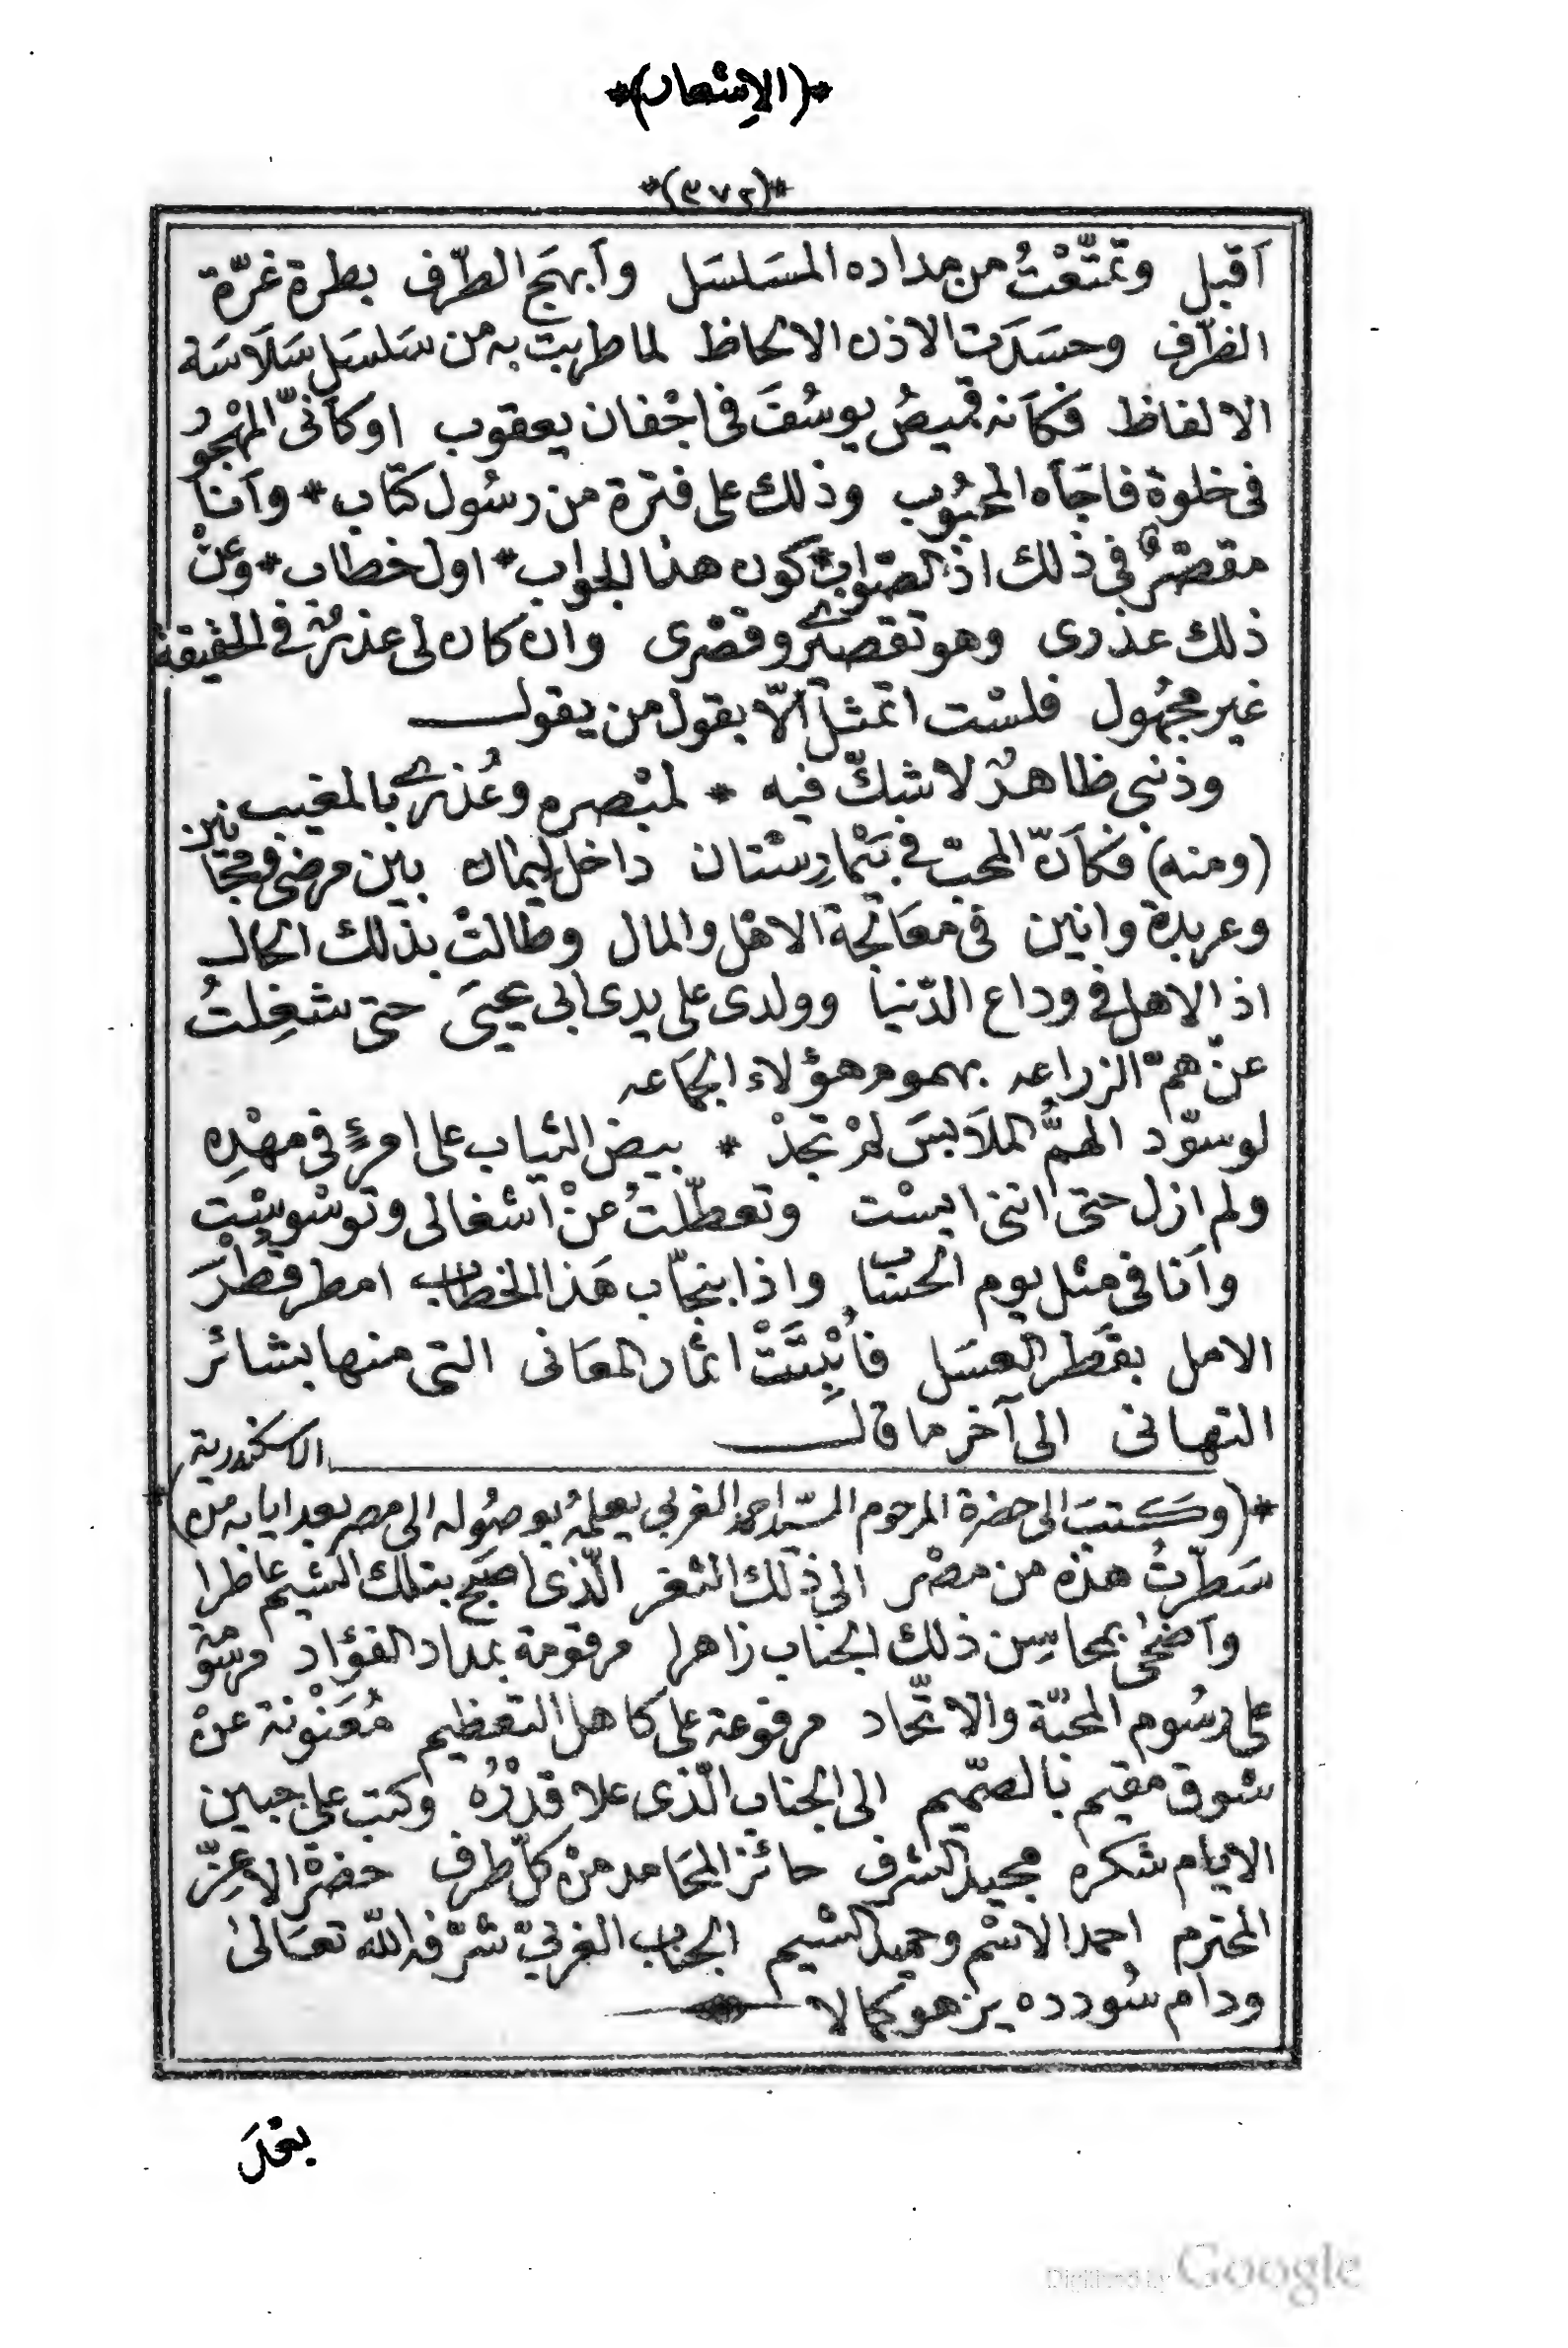 *(الاشعار)*
*(٣٧٢)*
اَقبل وتمتّعْتُ من مداده المسَلسَل وأبهَج الطّرف بطرة غرّة
الظرّف وحسَدَت الاذن الالحاظ لما طربت به من سَلسَل سَلَاسَة
الالفاظ فكاَنه قميصُ يوسُفَ فى اجْفان يعقوب اوكأنىّ المهْجُور
فى خلوة فاجَأه المحبُوب وذلك على فترة من رسُول كتاب * وأنا
مقصّرٌ فى ذلك اذ الصّواب * كون هذا الجواب * اول خطاب * وعَنْ
ذلك عذرى وهو تقصيرى وقصْرى وان كان لى عذرٌ فى الحقيقة
غير مجهُول فلسْت اتمثل الّا بقول من يقول
وذنبى ظاهرٌ لاشكّ فيه * لمبْصره وعُذرى بالمغيب
(ومنه) فكأنّ المحبّ فى بيْمارِستان داخل ليمان بين مرضى ومجَانين
وعربدة وانين فى معَالجة الاهْل والمال وطالتْ بذلك الحال
اذ الاهل فى وداع الدّنيا وولدى على يدى ابى يحيىَ حتى شغِلتُ
عنْ همّ الزراعه بهموم هؤلاء الجمَاعه
لوسوّد الهمُّ الملَابسَ لمْ تجدْ * بيض الثياب على امرئٍ فى مهْدِه
ولم ازل حتى اننى ايسْت وتعطّلتُ عنْ اَشغالى وتوسْوسْت
وأنا فى مثل يوم الحسَاب واذا بنجّاب هَذا الخطاب امطر قطْرَ
الامل بقَطر العسَل فأنْبتَتْ اثمار المعَانى التى منها بشائر
التهانى الى آخر ما قال
*(وكتبَ الى حضرة المرحوم السّيد احمد الغربى يعلمهُ بوصُوله الى مصر بعد ايابه من الاسكندرية)*
سَطرّتُ هذه من مصْر الى ذلك الثغر الّذى اصبَح بتلك الشيم عاطرا
وأضحىٰ بمحاسِن ذلك الجناب زاهرا مرقومة بمداد الفؤاد مرسُومة
على رسُوم المحبّة والاتّحاد مرفوعة على كاهل التعظيم مُعَنْوَنة عنْ
شوق مقيم بالصّميم الى الجناب الّذى علا قدْرُه وكتب على جبين
الايام شكره مجيد الشرف حائز المحَامد منْ كلّ طرف حضرة الاعزّ
المحترم احمد الاسْم وحميد الشيم الجناب الغربىّ شرّفه الله تعَالىٰ
ودام سُودده يزهو كمالا
بعْدَ
Digitized by Google